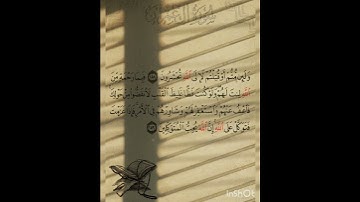 وَلَئِن مُّتُّمْ أَوْ قُتِلْتُمْ لَإِلَى ٱللَّهِ تُحْشَرُونَ ۝ فَبِمَا رَحْمَةٍ مِّنَ
ٱللَّهِ لِنتَ لَهُمْ وَلَوْ كُنتَ فَظًّا غَلِيظَ ٱلْقَلْبِ لَٱنفَضُّوا۟ مِنْ حَوْلِكَ
فَٱعْفُ عَنْهُمْ وَٱسْتَغْفِرْ لَهُمْ وَشَاوِرْهُمْ فِى ٱلْأَمْرِ فَإِذَا عَزَمْتَ
فَتَوَكَّلْ عَلَى ٱللَّهِ إِنَّ ٱللَّهَ يُحِبُّ ٱلْمُتَوَكِّلِينَ ۝
InShot